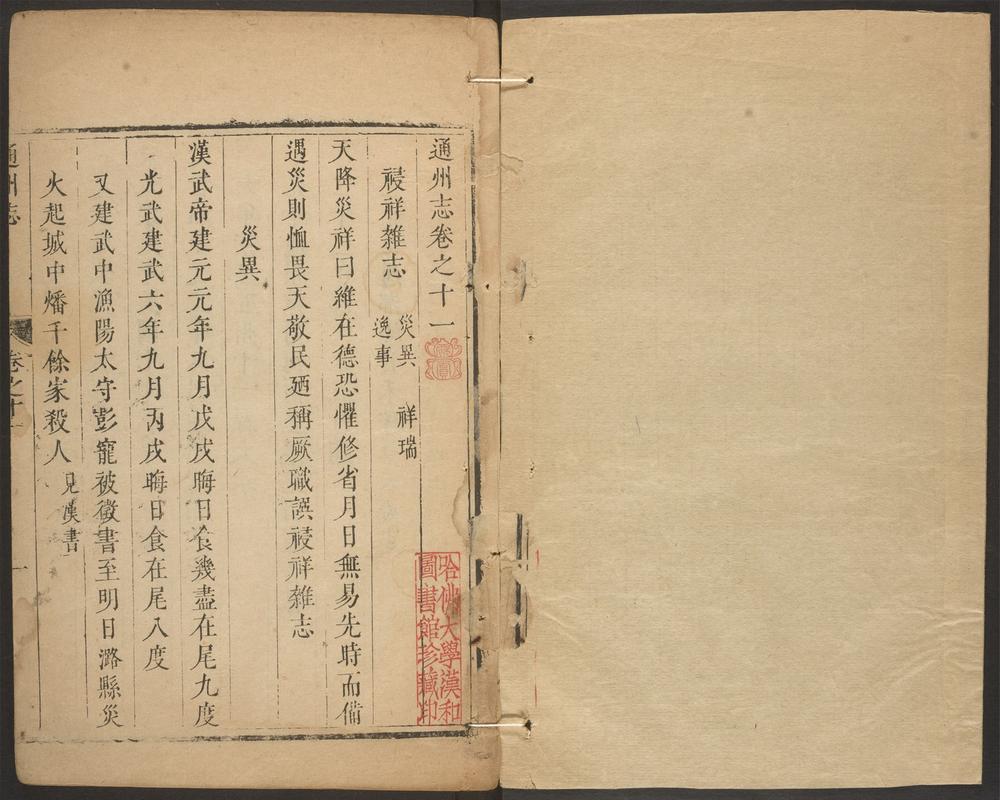 通州志卷之十一
祲祥雜志 災異 祥瑞
逸事
天降災祥曰維在德恐懼修省月日無易先時而備
遇災則恤畏天敬民廼稱厥職譔祲祥雜志
災異
漢武帝建元元年九月戊戌晦日食幾盡在尾九度
光武建武六年九月丙戌晦日食在尾入度
又建武中漁陽太守彭寵被徵書至明日潞縣災
火起城中燔千餘家殺人 見漢書
通州志 卷之十一 一
哈佛大學漢和
圖書館珍藏印